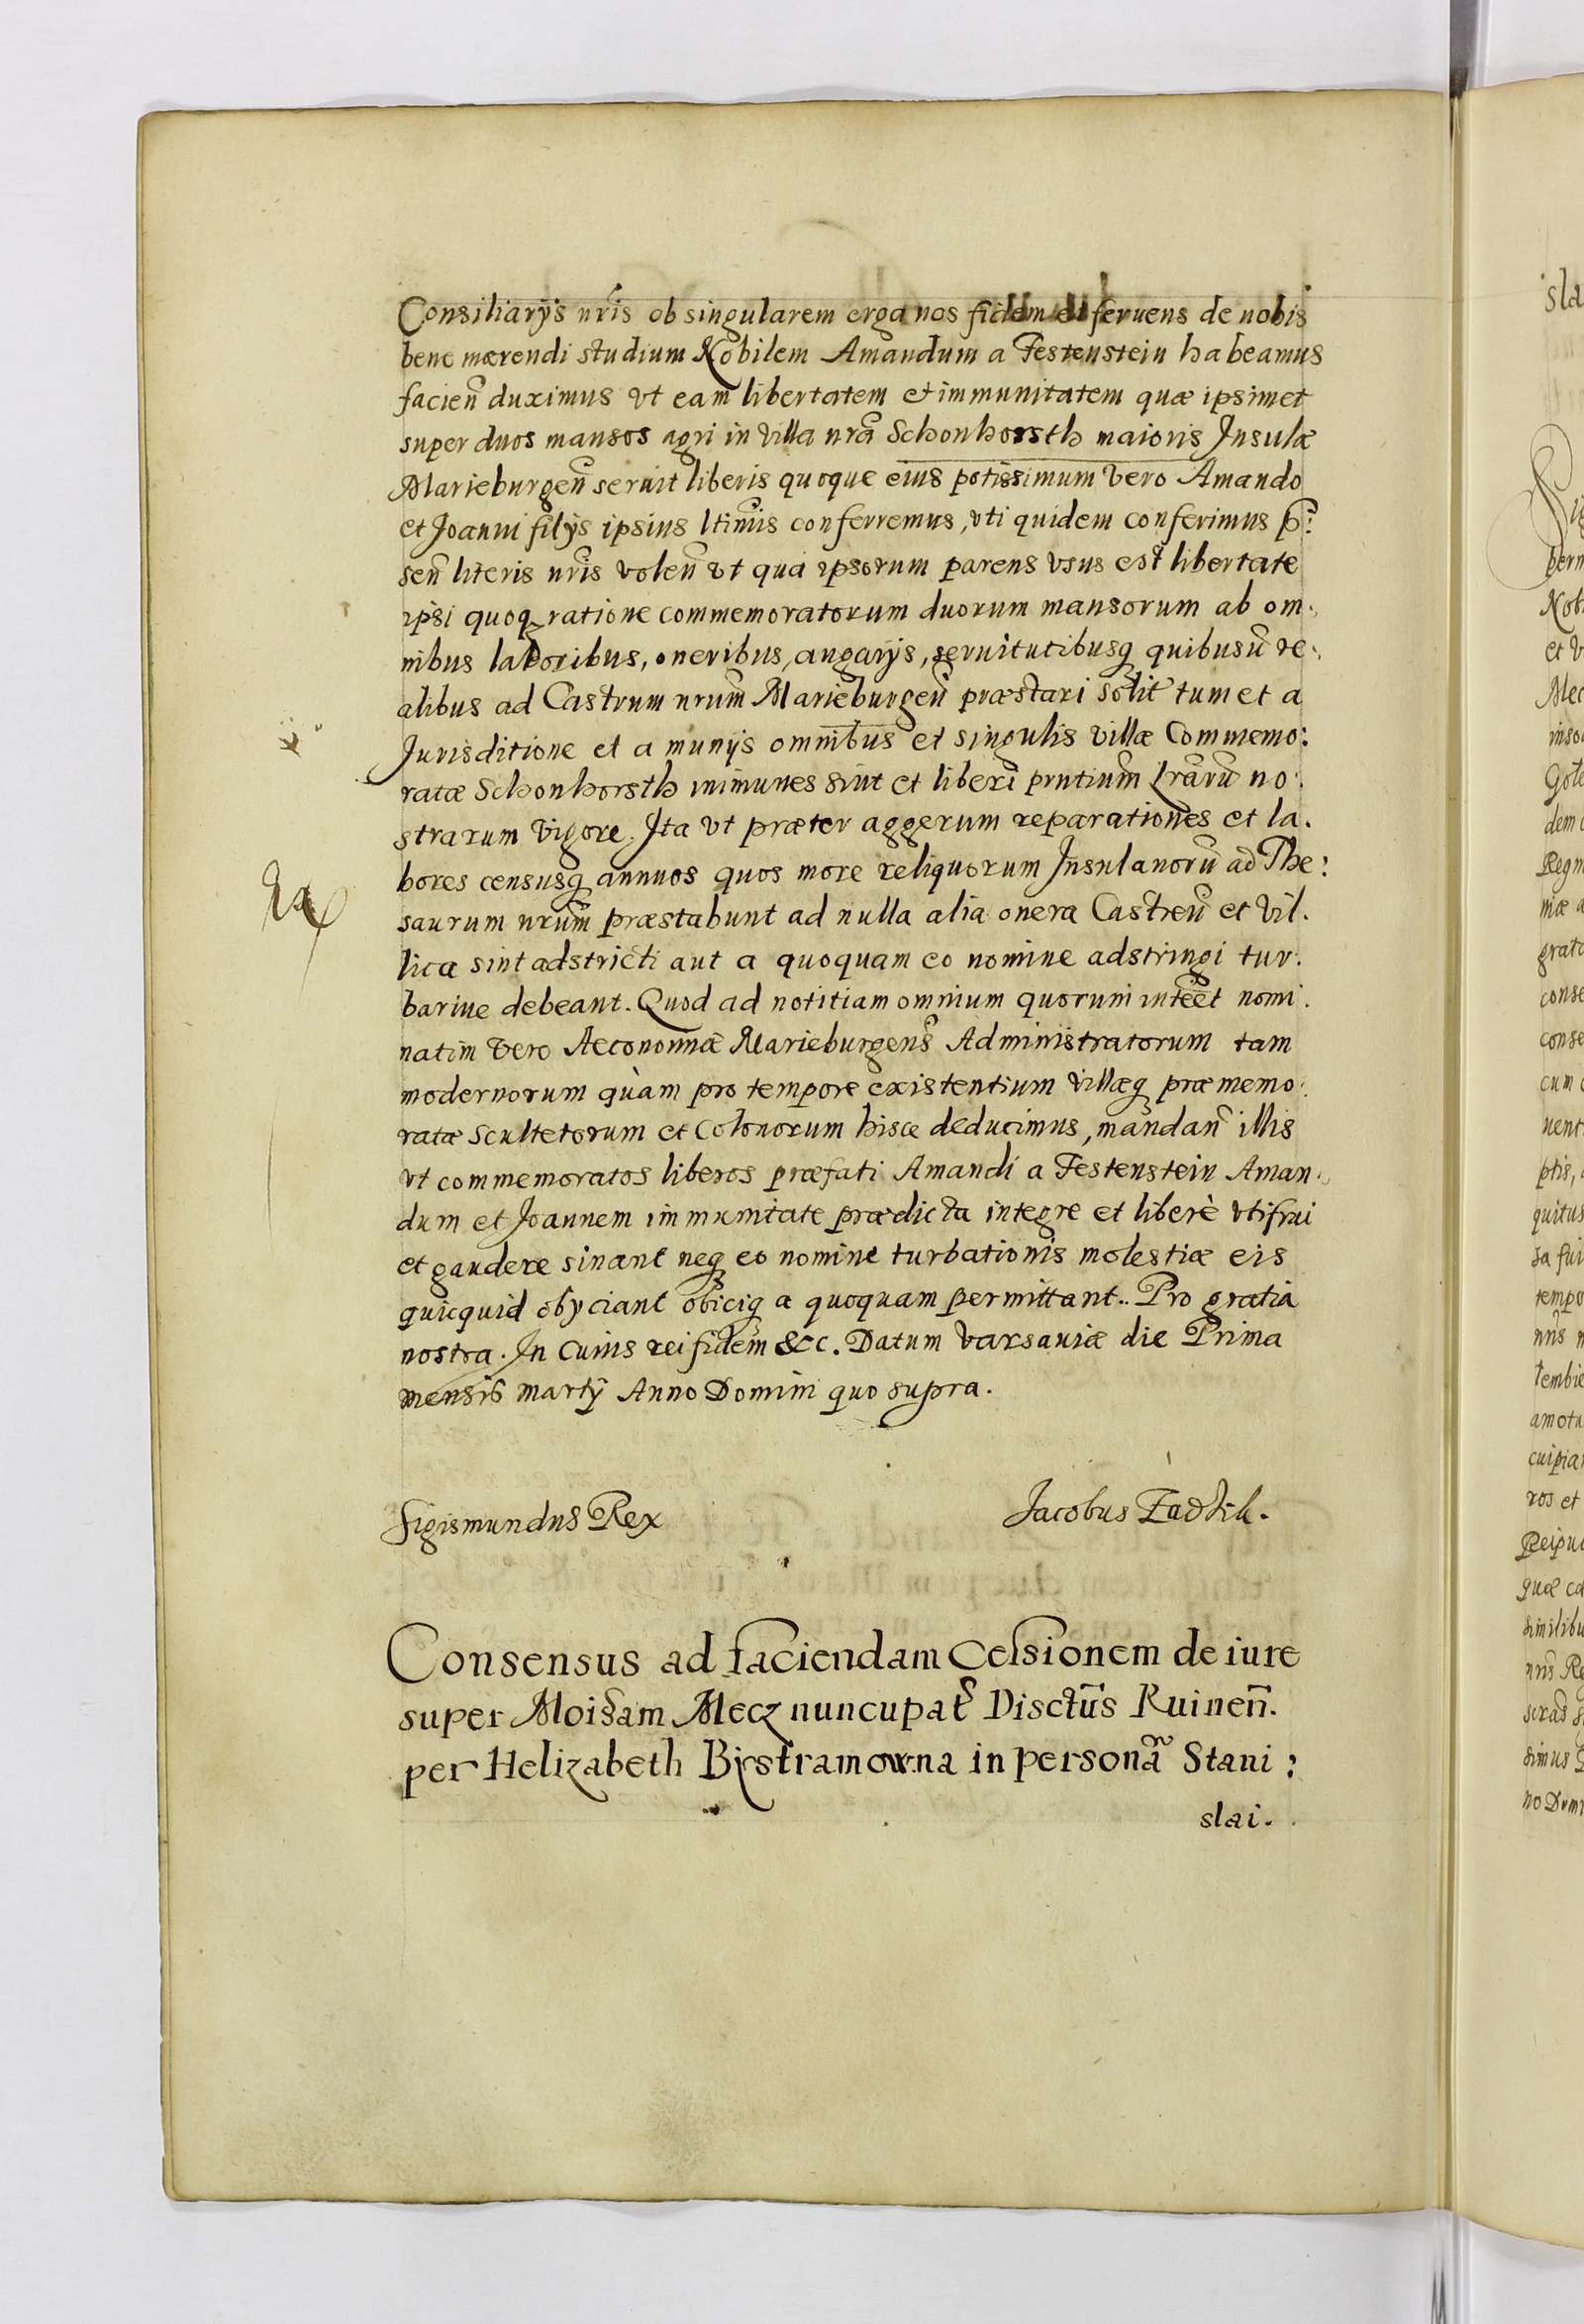 Consiliarÿs nrĩs ob singularem erga nos fidem et feruens de nobis
bene mærendi studium Nobilem Amandum a Festenstein habeamus
facieñ duximus vt eam libertatem et immunitatem quæ ipsimet
super duos mansos agri in villa nrã Schonhorsth maioris Insulæ
Marieburgeñ seruit liberis quoque eius potissimum vero Amando
et Joanni filÿs ipsius ltimĩs conferremus, vti quidem conferimus p̃:
señ literis nrĩs voleñ vt qua ipsorum parens vsus est libertate
ipsi quoq̃ ratione commemoratorum duorum mansorum ab om.
nibus laboribus, oneribus, angarÿs, seruitutibusq̃ quibusũ re.
alibus ad Castrum nrum̃ Marieburgeñ præstari solit tum et a
Jurisditione et a munÿs omnibus et singulis villæ Commemo:
ratæ Schonhorsth immunes sint et liberi pntium̃ lrãrũ no:
strarum vigore. Ita vt præter aggerum reparationes et la.
bores censusq̃ annuos quos more reliquorum Insulanorũ ad The:
saurum nrum̃ præstabunt ad nulla alia onera Castreñ et vil.
lica sint adstricti aut a quoquam eo nomine adstringi tur.
bariue debeant. Quod ad notitiam omnium quorum inteẽt nomi.
natim vero Aeconomiæ Marieburgens̃ Administratorum tam
modernorum quàm pro tempore existentium villæq̃ præmemo.
ratæ scultetorum et Colonorum hisce deducimus, mandañ illis
vt commemoratos liberos præfati Amandi a Festenstein Aman.
dum et Joannem immunitate prædicta integre et liberè vtifrui
et gaudere sinant neq̃ eo nomine turbationis molestiæ eis
quicquid obÿciant obiciq̃ a quoquam permittant.. Pro gratia
nostra. In cuius rei fidem &c. Datum varsauiæ die Prima
mensis martÿ Anno Domini quo supra.
Sigismundus Rex
Jacobus Zadzik.
Consensus ad faciendam Cessionem de iure
super Moisam Mecz nuncupat̃ Disctũs Ruineñ.
per Helizabeth Bystramowna in personã Stani:
slai.